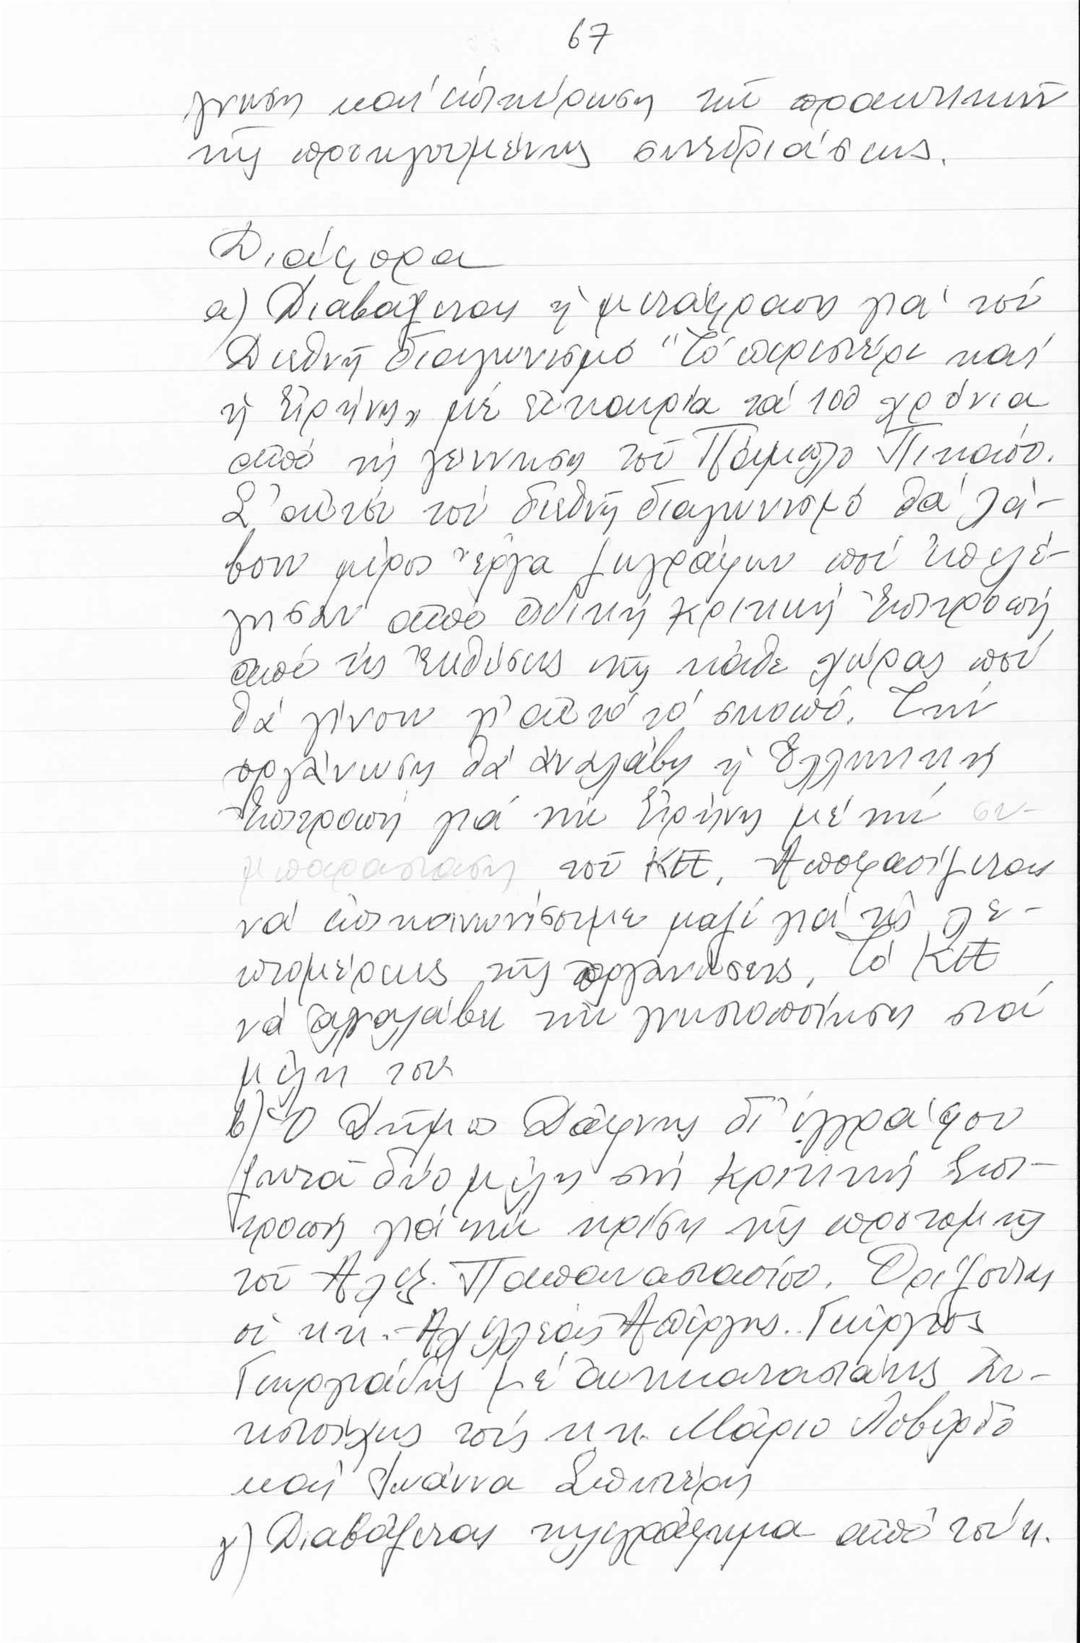 67
γνωση καί ἐπικύρωση τῶν πρακτικῶν
τῆς προηγουμένης συνεδριάσεως.
Διάφορα
α) Διαβάζεται ἡ μετάφραση γιά τόν
Διεθνῆ διαγωνισμό "Τό περιστέρι καί
ἡ Εἰρήνη" μέ εὐκαιρία τά 100 χρόνια
ἀπό τή γέννηση τοῦ Πάμπλο Πικάσο.
Σ' αὐτόν τόν διεθνῆ διαγωνισμό θά λά-
βουν μέρος ἔργα ζωγράφων πού ἐπελέ-
γησαν ἀπό εἰδική κριτική Ἐπιτροπή
ἀπό τίς Ἐκθέσεις τῆς κάθε χώρας πού
θά γίνουν γι' αὐτό τό σκοπό. Τήν
ὀργάνωση θά ἀναλάβη ἡ Ἑλληνική
Ἐπιτροπή γιά τήν Εἰρήνη μέ τήν συ-
μπαράσταση τοῦ ΚΕΕ. Ἀποφασίζεται
νά ἐπικοινωνήσουμε μαζί γιά τίς λε-
πτομέρειες τῆς ὀργανώσεως. Τό ΚΕΕ
νά ἀναλάβει τήν γνωστοποίηση στά
μέλη του
β) Ὁ Δῆμος Δάφνης δι' ἐγγράφου
ζητᾶ δύο μέλη στή κριτική Ἐπι-
τροπή γιά τήν κρίση τῆς προτομῆς
τοῦ Ἀλεξ. Παπαναστασίου. Ὁρίζονται
οἱ κ.κ. Ἀχιλλέας Ἀπέργης. Γεώργιος
Γεωργιάδης μέ ἀντικαταστάτες ἀν-
τιστοίχως τούς κ.κ. Μάριο Λοβέρδο
καί Ἰωάννα Σπητέρη
γ) Διαβάζεται τηλεγράφημα ἀπό τόν κ.